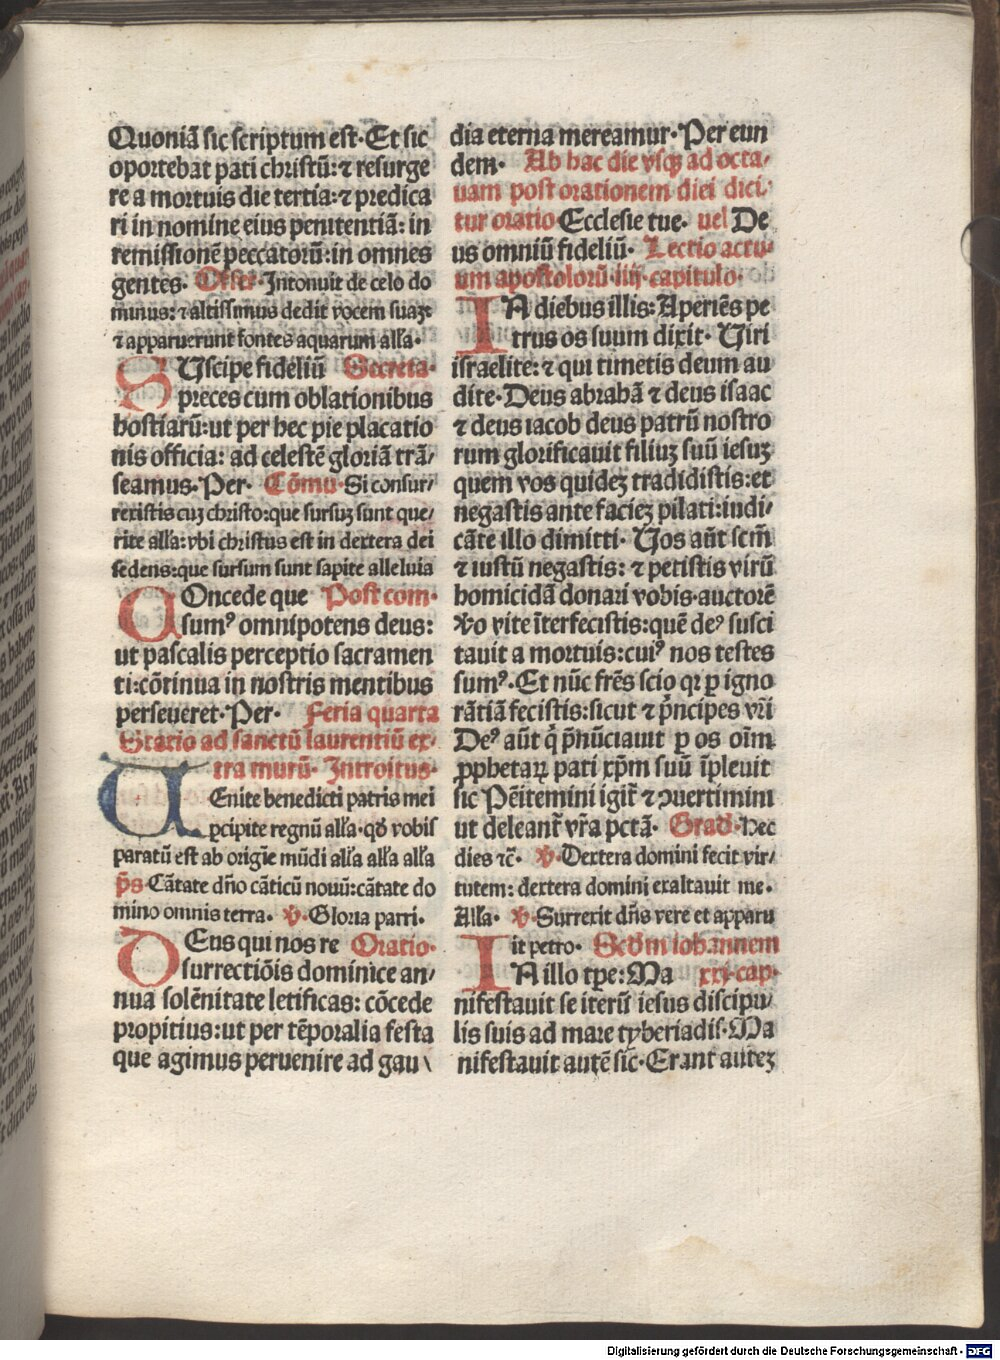 Quoniā sic scriptum est· Et sic
oportebat pati christū: ⁊ resurge
re a mortuis die tertia: ⁊ predica
ri in nomine eius penitentiā: in
remissionē peccatorū: in omnes
gentes· Offer· Intonuit de celo do
minus: ⁊ altissimus dedit vocem suaꝫ:
⁊ apparuerunt fontes aquarum alľa·
SUscipe fideliū Secreta·
preces cum oblationibus
hostiarū: ut per hec pie placatio
nis officia: ad celestē gloriā trā/
seamus· Per· Cōmu· Si consur/
rexistis cuꝫ christo: que sursuꝫ sunt que/
rite alľa: vbi christus est in dextera dei
sedens: que sursum sunt sapite alleluia
COncede que Post com·
sumꝰ omnipotens deus:
ut pascalis perceptio sacramen
ti: cōtinua in nostris mentibus
perseueret· Per· Feria quarta
Statio ad sanctū laurentiū ex/
tra murū· Introitus·
UEnite benedicti patris mei
ꝑcipite regnū alľa· qd̄ vobis
paratū est ab origīe mūdi alľa alľa alľa
p̄s· Cātate dn̄o cāticū nouū: cātate do
mino omnis terra· ꝟ· Gloria patri·
DEus qui nos re Oratio·
surrectiōis dominice an/
nua solēnitate letificas: cōcede
propitius: ut per tēporalia festa
que agimus peruenire ad gau\
dia eterna mereamur· Per eun
dem· Ab hac die vsqꝫ ad octa/
uam post orationem diei dici/
tur oratio Ecclesie tue· uel De
us omniū fideliū· Lectio actu/
um apostolorū· iiij· capitulo·
IN diebus illis: Aperiēs pe
trus os suum dixit· Uiri
israelite: ⁊ qui timetis deum au
dite· Deus abrahā ⁊ deus isaac
⁊ deus iacob deus patrū nostro
rum glorificauit filiuꝫ suū iesuꝫ
quem vos quideꝫ tradidistis: et
negastis ante facieꝫ pilati: iudi/
cāte illo dimitti· Uos aūt scm̄
⁊ iustū negastis: ⁊ petistis virū
homicidā donari vobis· auctorē
ṽo vite īterfecistis: quē deꝰ susci
tauit a mortuis: cuiꝰ nos testes
sumꝰ· Et nūc frēs scio qꝛ ꝑ igno
rātiā fecistis: sicut ⁊ p̄ncipes vr̄i
Deꝰ aūt q̄ p̄nūciauit ꝑ os oīm
ꝓphetaꝝ pati xp̄m suū īpleuit
sic Pēitemini igit̄ ⁊ ↄuertimini
ut deleant̄ vr̄a pctā· Grad̄· Hec
dies ⁊c̄· ꝟ· Dextera domini fecit vir/
tutem: dextera domini exaltauit me·
Alľa· ꝟ· Surrexit dn̄s vere et apparu
it petro· Scd̄m iohannem
IN illo tꝑe: Ma xxj· cap·
nifestauit se iterū iesus discipu/
lis suis ad mare tyberiadis· Ma
nifestauit autē sic· Erant auteꝫ
Digitalisierung gefördert durch die Deutsche Forschungsgemeinschaft - DFG